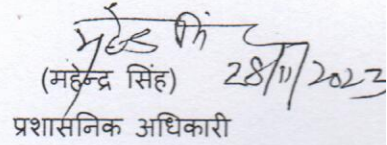 महेन्द्र सिं
(महेन्द्र सिंह) 28/11/2023
प्रशासनिक अधिकारी